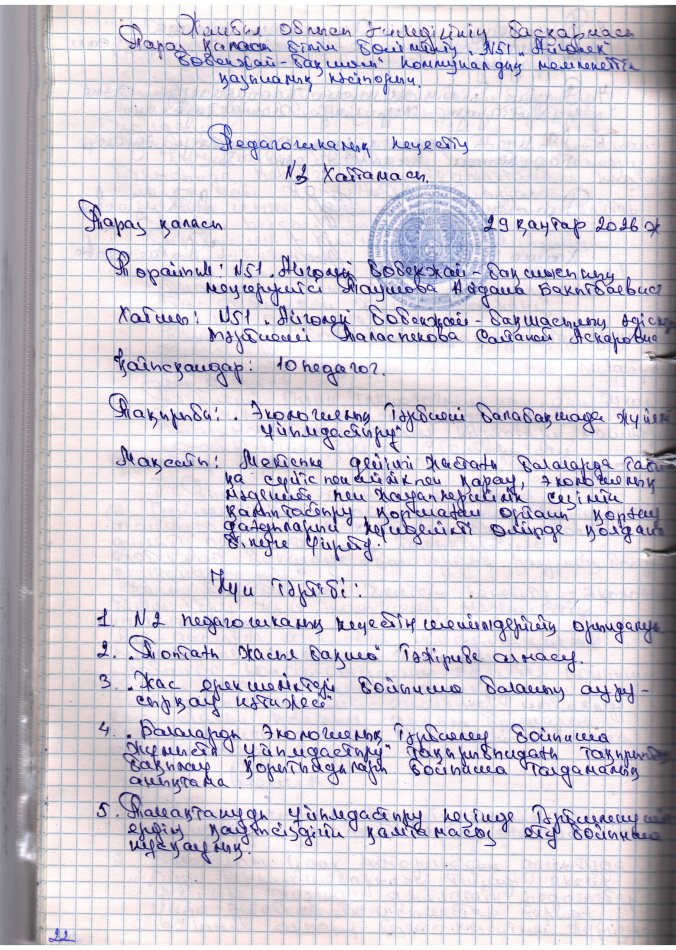 Жамбыл облысы әкімдігінің басқармасы
Тараз қаласы білім бөлімінің №51 „Айгөлек"
бөбекжай-бақшасы" коммуналдық мемлекеттік
қазыналық кәсіпорны.
Педагогикалық кеңестің
№3 Хаттамасы.
Тараз қаласы 29 қаңтар 2026 ж
Төрайымы: №51 „Айгөлек бөбекжай-бақшасының
меңгерушісі Айдана Бакытбаевна
Хатшы: №51 „Айгөлек бөбекжай-бақшасының әдіскер
тәрбиеші Саламой Аскаровна
Қатысқандар: 10 педагог.
Тақырыбы: „Экологиялық тәрбиені балабақшада
ұйымдастыру"
Мақсаты: Мектепке дейінгі жастағы балаларда
қа сүйіспеншілікпен қарау, экологиялық
мәдениет пен жауапкершілік сезімін
қалыптастыру, қоршаған ортаны қорғау
дағдыларын күнделікті өмірде қолдана
білуге үйрету.
Күн тәртібі:
1. №2 педагогикалық кеңестің шешімдерінің орындалуы
2. „Жасыл бақша" тәжірибе алмасу.
3. „Жас ерекшеліктері бойынша баланың ауру-
сырқау нәтижесі"
4. „Балаларды экологиялық тәрбиелеу бойынша
жұмысты ұйымдастыру" тақырыбындағы тақырыптық
бақылау қорытындылары бойынша талдамалық
анықтама.
5. Тамақтануды ұйымдастыру кезінде
ердің қауіпсіздігін қамтамасыз ету бойынша
нұсқаулық.
22